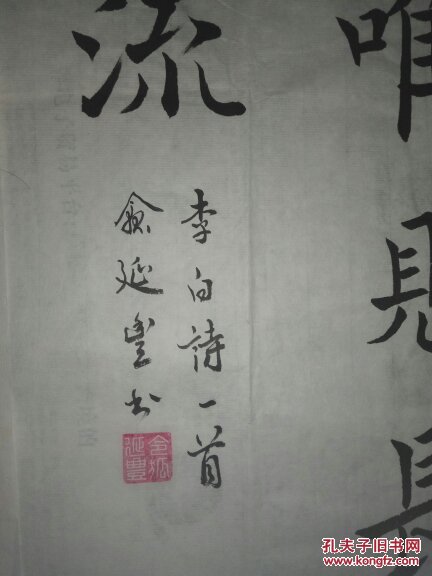 唯見長
流
李白詩一首
延豐书
令狐延豐
孔夫子旧书网
www.kongfz.com